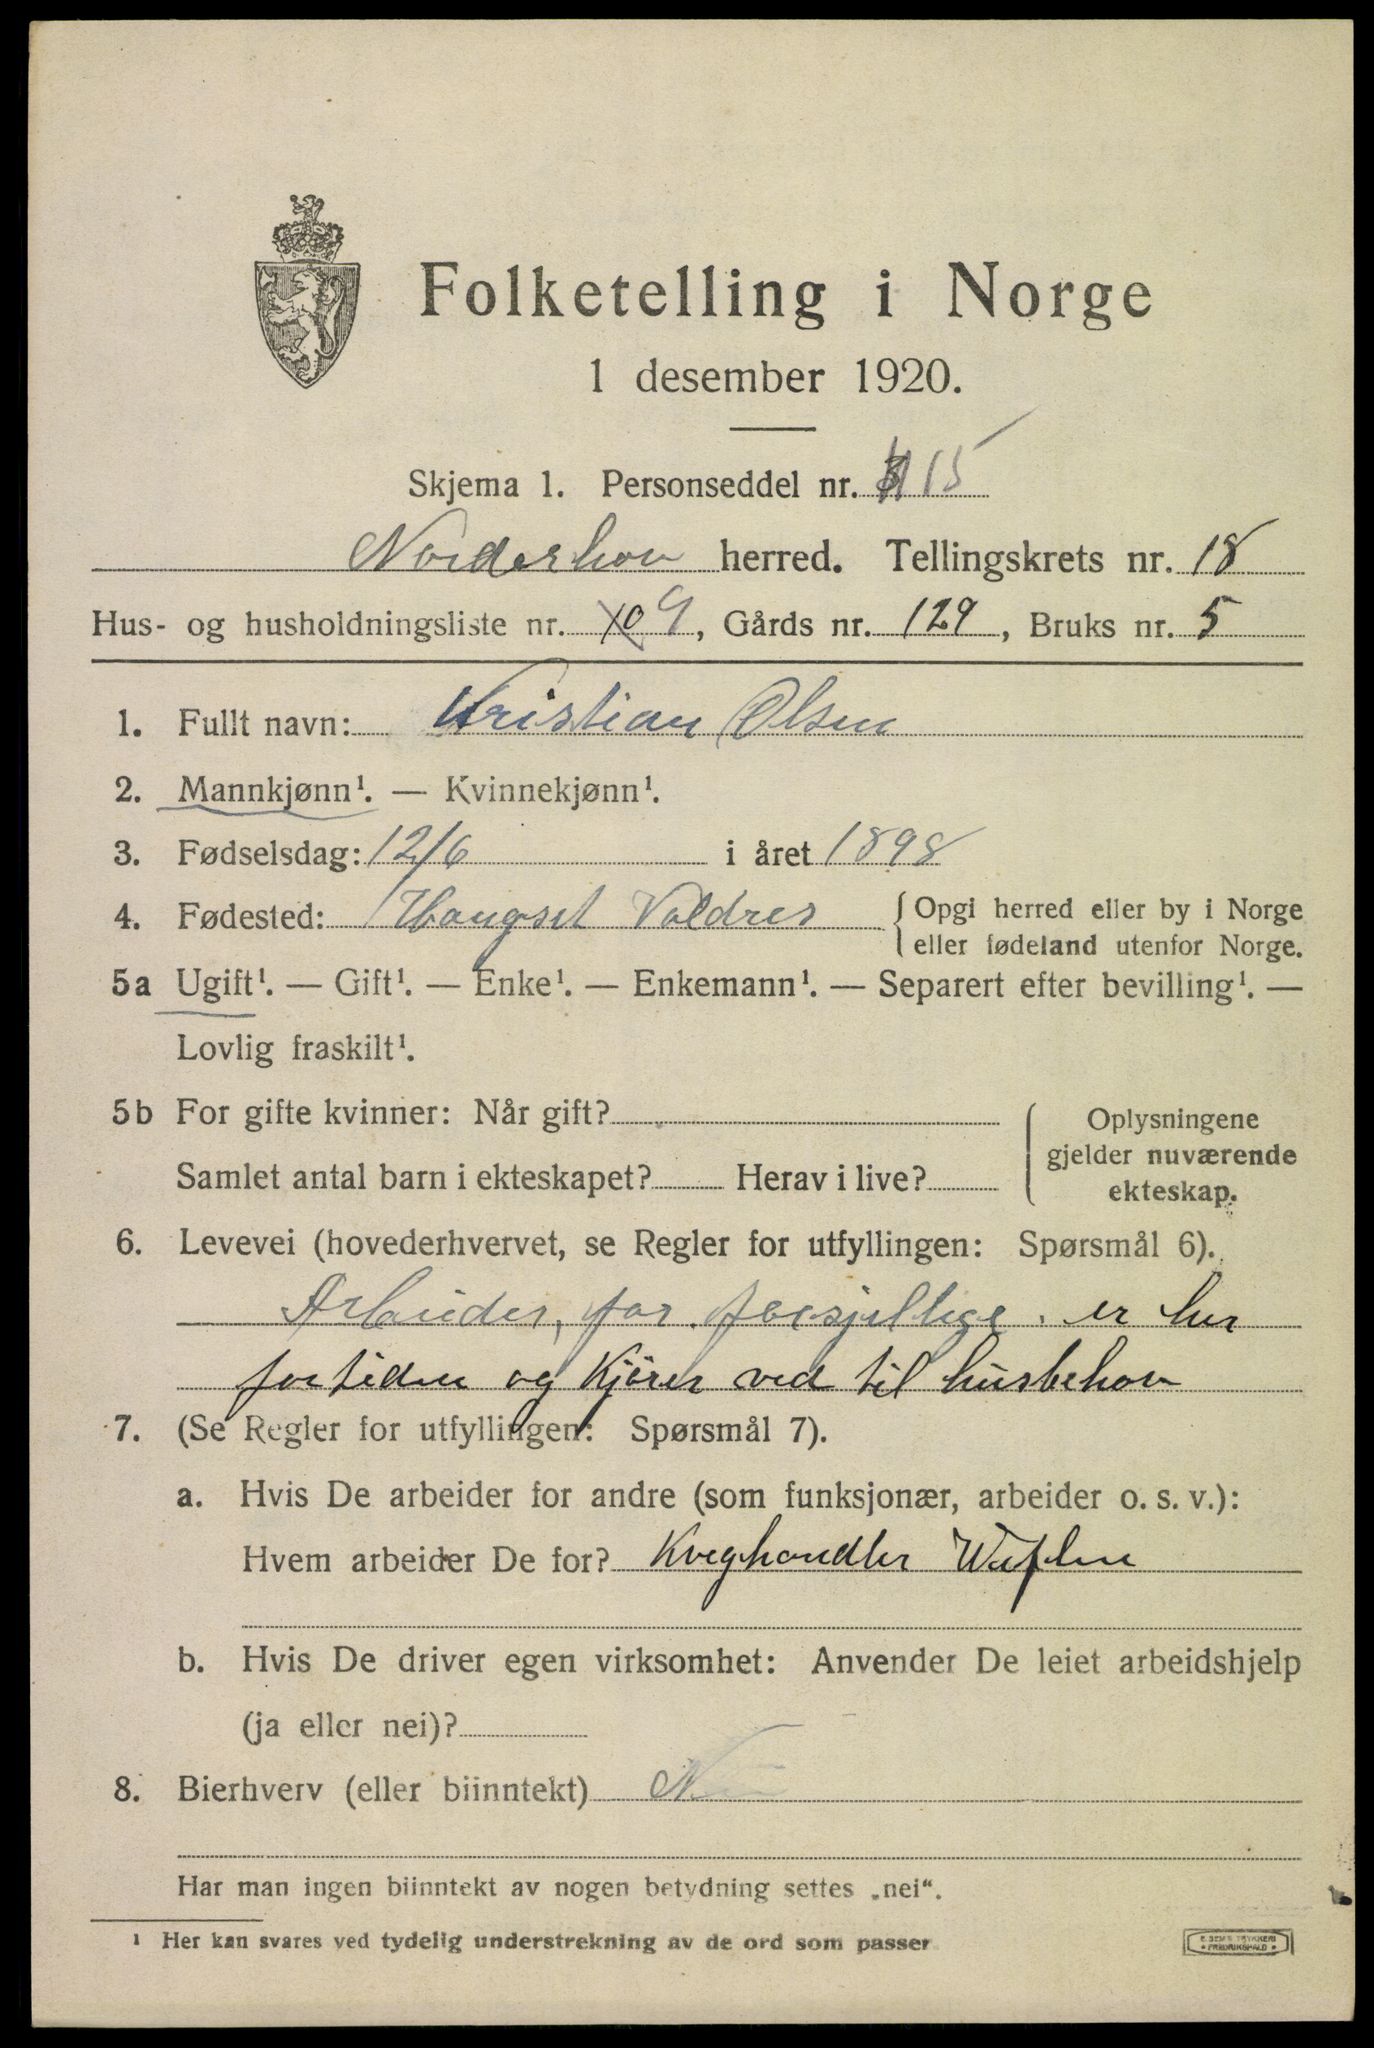 Folketelling i Norge
1 desember 1920.
Skjema 1. Personseddel nr. 15
Norderhov herred. Tellingskrets nr. 18
Hus- og husholdningsliste nr. 10 9, Gårds nr. 129, Bruks nr. 5
1. Fullt navn: Kristian Olsen
2. Mannkjønn¹. — Kvinnekjønn¹.
3. Fødselsdag: 12/6 i året 1898
4. Fødested: Haugset Valdres { Opgi herred eller by i Norge
eller fødeland utenfor Norge.
5a Ugift¹. — Gift¹. — Enke¹. — Enkemann¹. — Separert efter bevilling¹. —
Lovlig fraskilt¹.
5b For gifte kvinner: Når gift? { Oplysningene
gjelder nuværende
ekteskap.
Samlet antal barn i ekteskapet? Herav i live?
6. Levevei (hovederhvervet, se Regler for utfyllingen: Spørsmål 6).
Arbeider, for forsjellige. er her
fortiden og kjører ved til husbehov
7. (Se Regler for utfyllingen: Spørsmål 7).
a. Hvis De arbeider for andre (som funksjonær, arbeider o. s. v.):
Hvem arbeider De for? Kveghandler
b. Hvis De driver egen virksomhet: Anvender De leiet arbeidshjelp
(ja eller nei)?
8. Bierhverv (eller biinntekt) Nei
Har man ingen biinntekt av nogen betydning settes „nei“.
¹ Her kan svares ved tydelig understrekning av de ord som passer